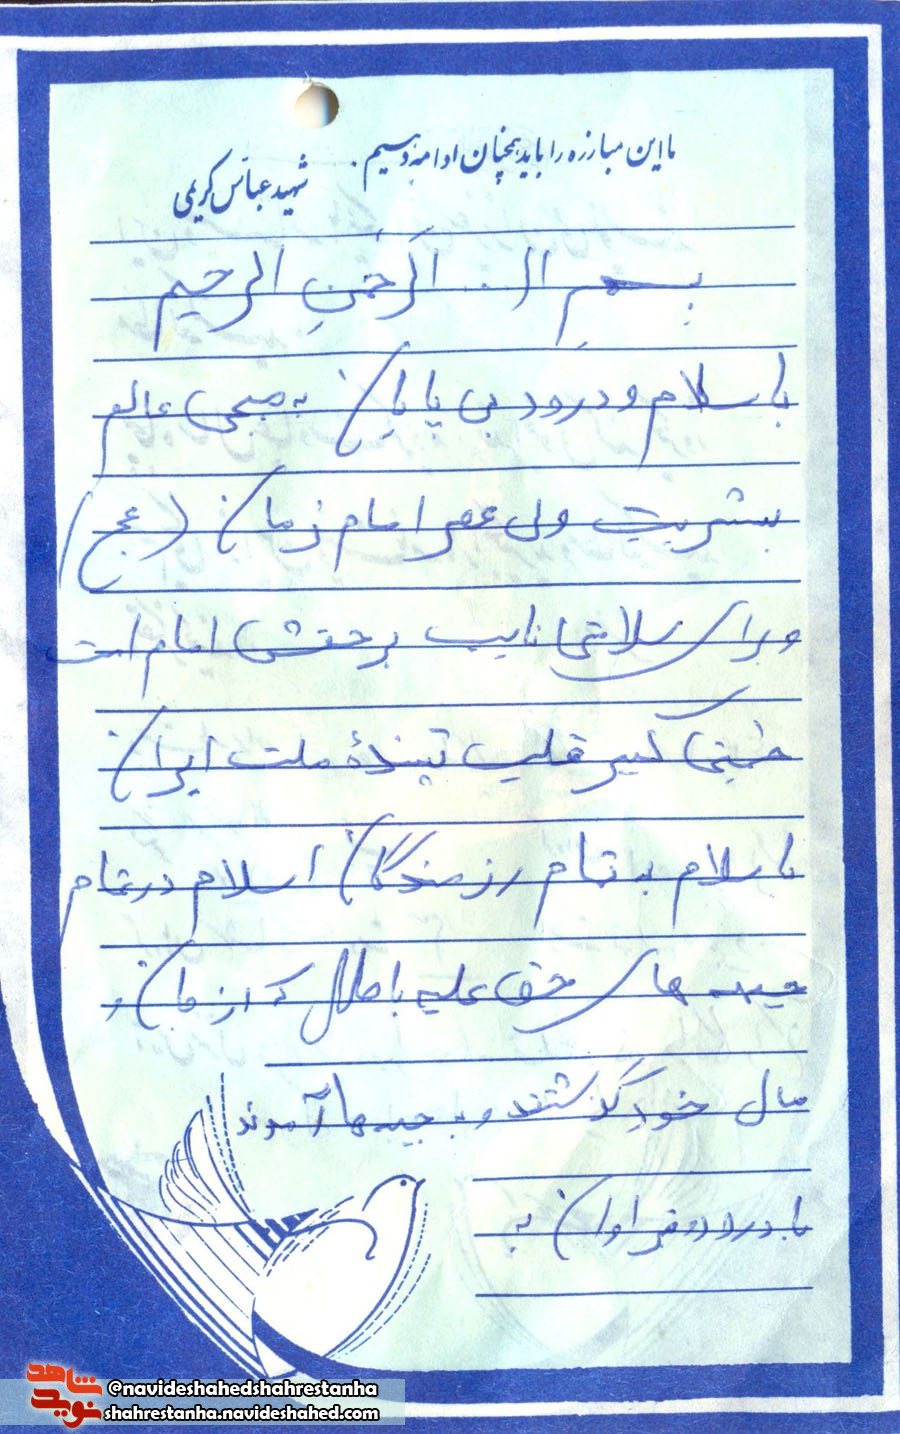 ما این مبارزه را باید همچنان ادامه دهیم.
شهید عباس کریمی
بسم ال... الرحمن الرحیم
با سلام و درود بی پایان به منجی عالم
بشریت ولی عصر امام زمان (عج)
و برای سلامتی نایب بر حقش امام امت
خمینی کبیر قلب تپندهٔ ملت ایران
با سلام به تمام رزمندگان اسلام در تمام
جبهه های حق علیه باطل که از جان و
مال خود گذشتند و به جبهه ها آمدند
با درود فراوان به
شاهد
نوید
@navideshahedshahrestanha
shahrestanha.navideshahed.com